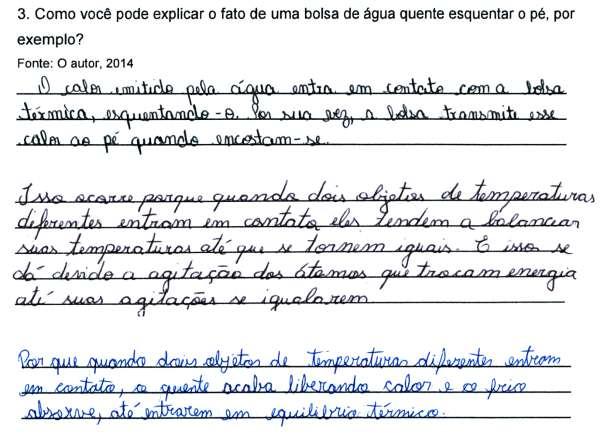 3. Como você pode explicar o fato de uma bolsa de água quente esquentar o pé, por
exemplo?
Fonte: O autor, 2014
O calor emitido pela água entra em contato com a bolsa
térmica, esquentando-o. Por sua vez, a bolsa transmite esse
calor ao pé quando encostam-se.
Isso ocorre porque quando dois objetos de temperaturas
diferentes entram em contato eles tendem a balancear
suas temperaturas até que se tornem iguais. E isso se
dá devido a agitação dos átomos que trocam energia
até suas agitações se igualarem
Por que quando dois objetos de temperaturas diferentes entram
em contato, o quente acaba liberando calor e o frio
absorve, até entrarem em equilibrio térmico.